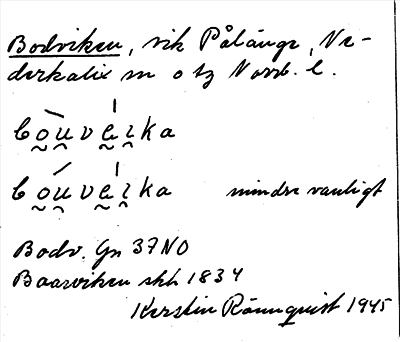 Bodviken, vik Pålänge, Ne-
derkalix sn o tg Norrb. l.
bo̰u̯vḛi̯ka
bo̰u̯vḛi̯ka mindre vanligt
Bodv. Gn 37 NO
Baarviken skh 1834
Kerstin Rönnquist 1945